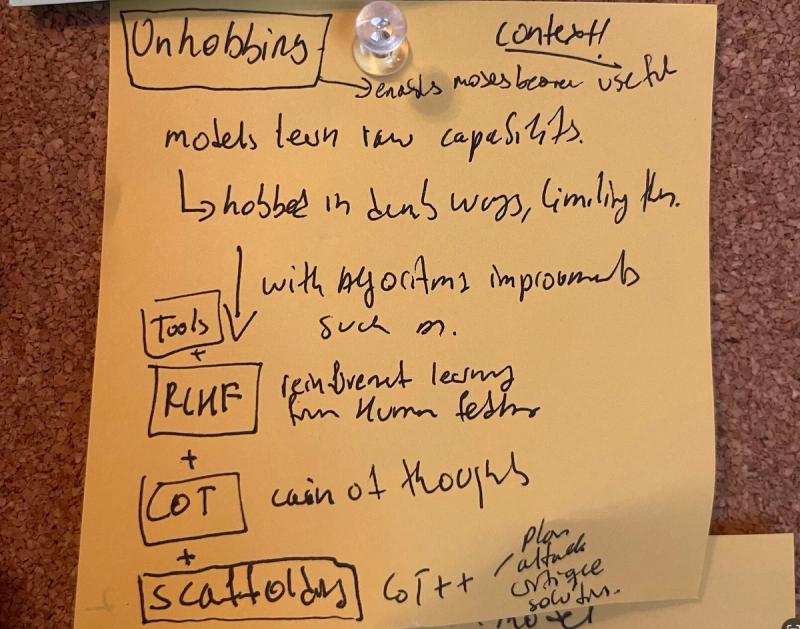 Unhobbing
context!
→ enables models become useful
models learn raw capabilities.
↳ hobbed in dumb ways, limiting them.
↓ with algoritms improvements
such as.
Tools
+
RLHF reinforcement learning
from Human feedback
+
COT cain of thoughts
+
scaffolding COT++ / plan
attack
critique
solutions.
model